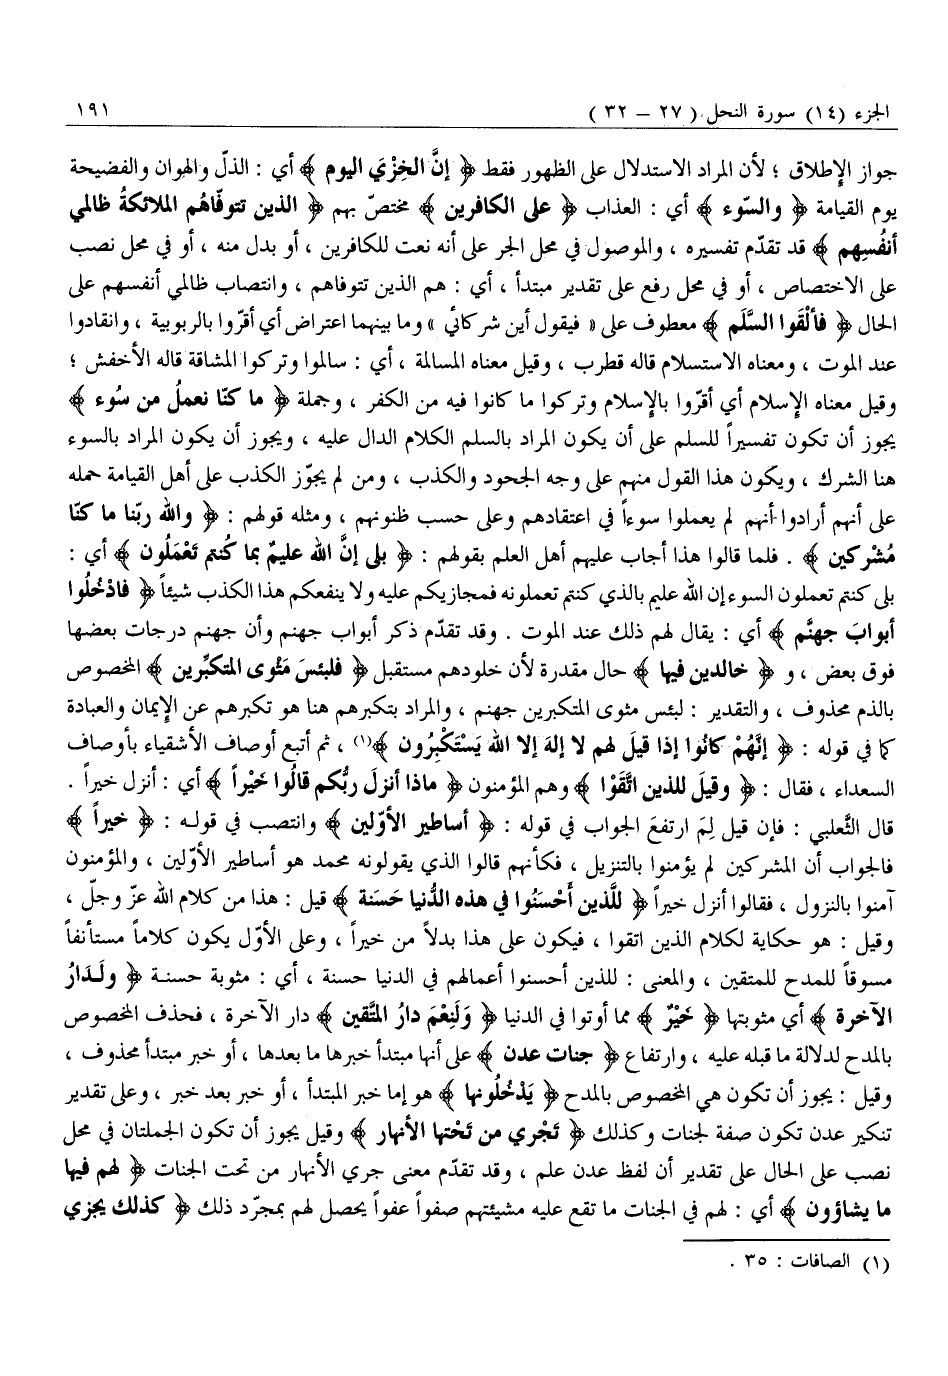 الجزء (١٤) سورة النحل ( ٢٧ – ٣٢ ) ١٩١
جواز الإطلاق ؛ لأن المراد الاستدلال على الظهور فقط ﴿ إنَّ الخِزْيَ اليوم ﴾ أي : الذلّ والهوان والفضيحة
يوم القيامة ﴿ والسّوء ﴾ أي : العذاب ﴿ على الكافرين ﴾ مختصّ بهم ﴿ الذين تتوفّاهُم الملائكةُ ظالمي
أنفُسِهم ﴾ قد تقدّم تفسيره ، والموصول في محل الجر على أنه نعت للكافرين ، أو بدل منه ، أو في محل نصب
على الاختصاص ، أو في محل رفع على تقدير مبتدأ ، أي : هم الذين تتوفاهم ، وانتصاب ظالمي أنفسهم على
الحال ﴿ فألْقَوا السَّلَم ﴾ معطوف على « فيقول أين شركائي » وما بينهما اعتراض أي أقرّوا بالربوبية ، وانقادوا
عند الموت ، ومعناه الاستسلام قاله قطرب ، وقيل معناه المسالمة ، أي : سالموا وتركوا المشاقة قاله الأخفش ؛
وقيل معناه الإسلام أي أقرّوا بالإسلام وتركوا ما كانوا فيه من الكفر ، وجملة ﴿ ما كنّا نعملُ من سُوء ﴾
يجوز أن تكون تفسيراً للسلم على أن يكون المراد بالسلم الكلام الدال عليه ، ويجوز أن يكون المراد بالسوء
هنا الشرك ، ويكون هذا القول منهم على وجه الجحود والكذب ، ومن لم يجوّز الكذب على أهل القيامة حمله
على أنهم أرادوا أنهم لم يعملوا سوءاً في اعتقادهم وعلى حسب ظنونهم ، ومثله قولهم : ﴿ والله ربّنا ما كنّا
مُشْركين ﴾ . فلما قالوا هذا أجاب عليهم أهل العلم بقولهم : ﴿ بلى إنَّ الله عليمٌ بما كُنتم تَعْمَلُون ﴾ أي :
بلى كنتم تعملون السوء إن الله عليم بالذي كنتم تعملونه فمجازيكم عليه ولا ينفعكم هذا الكذب شيئاً ﴿ فادْخُلُوا
أبوابَ جهنَّم ﴾ أي : يقال لهم ذلك عند الموت . وقد تقدّم ذكر أبواب جهنم وأن جهنم درجات بعضها
فوق بعض ، و ﴿ خالدين فيها ﴾ حال مقدرة لأن خلودهم مستقبل ﴿ فلبئسَ مَثْوى المتكبِّرين ﴾ المخصوص
بالذم محذوف ، والتقدير : لبئس مثوى المتكبرين جهنم ، والمراد بتكبرهم هنا هو تكبرهم عن الإيمان والعبادة
كما في قوله : ﴿ إنَّهُمْ كانُوا إذا قيلَ لهم لا إلهَ إلا الله يَسْتَكْبِرُون ﴾(١) ، ثم أتبع أوصاف الأشقياء بأوصاف
السعداء ، فقال : ﴿ وقيلَ للذين اتَّقَوْا ﴾ وهم المؤمنون ﴿ ماذا أنزلَ ربُّكم قالُوا خَيْراً ﴾ أي : أنزل خيراً .
قال الثَّعلبي : فإن قيل لِمَ ارتفعَ الجواب في قوله : ﴿ أساطير الأوّلين ﴾ وانتصب في قوله : ﴿ خيراً ﴾
فالجواب أن المشركين لم يؤمنوا بالتنزيل ، فكأنهم قالوا الذي يقولونه محمد هو أساطير الأوّلين ، والمؤمنون
آمنوا بالنزول ، فقالوا أنزل خيراً ﴿ للَّذين أَحْسَنُوا في هذه الدُّنيا حَسَنة ﴾ قيل : هذا من كلام الله عزّ وجلّ ،
وقيل : هو حكاية لكلام الذين اتقوا ، فيكون على هذا بدلاً من خيراً ، وعلى الأوّل يكون كلاماً مستأنفاً
مسوقاً للمدح للمتقين ، والمعنى : للذين أحسنوا أعمالهم في الدنيا حسنة ، أي : مثوبة حسنة ﴿ ولَدَارُ
الآخرة ﴾ أي مثوبتها ﴿ خَيْرٌ ﴾ مما أوتوا في الدنيا ﴿ وَلَنِعْمَ دارُ المتَّقين ﴾ دار الآخرة ، فحذف المخصوص
بالمدح لدلالة ما قبله عليه ، وارتفاع ﴿ جنات عدن ﴾ على أنها مبتدأ خبرها ما بعدها ، أو خبر مبتدأ محذوف ،
وقيل : يجوز أن تكون هي المخصوص بالمدح ﴿ يَدْخُلُونها ﴾ هو إما خبر المبتدأ ، أو خبر بعد خبر ، وعلى تقدير
تنكير عدن تكون صفة لجنات وكذلك ﴿ تَجْري من تَحْتها الأنهار ﴾ وقيل يجوز أن تكون الجملتان في محل
نصب على الحال على تقدير أن لفظ عدن علم ، وقد تقدّم معنى جري الأنهار من تحت الجنات ﴿ لهم فيها
ما يشاؤون ﴾ أي : لهم في الجنات ما تقع عليه مشيئتهم صفواً عفواً يحصل لهم بمجرّد ذلك ﴿ كذلك يجزي
(١) الصافات : ٣٥ .